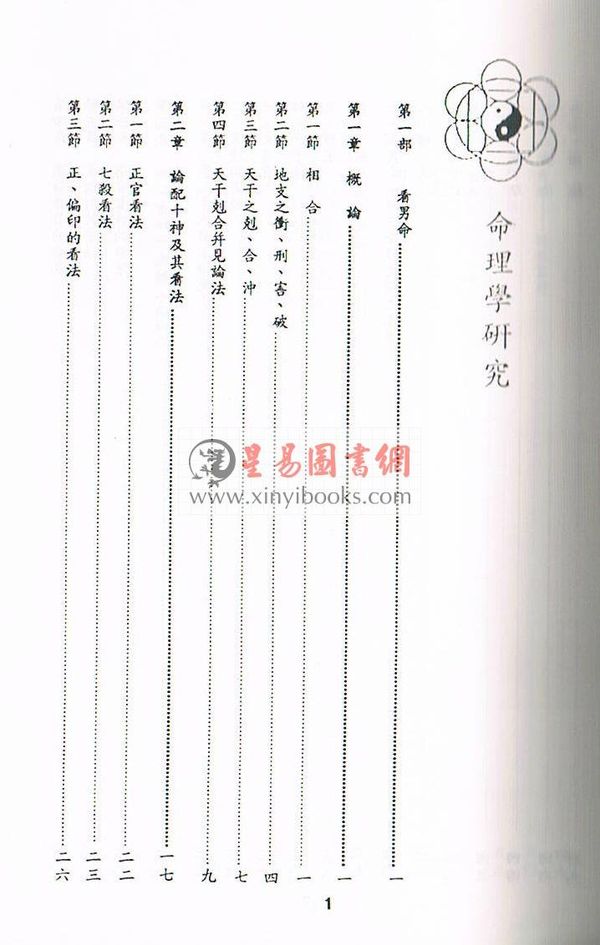 命理學研究
第一部 看男命……一
第一章 概論……一
第一節 相合……一
第二節 地支之衝、刑、害、破……四
第三節 天干之剋、合、沖……七
第四節 天干剋合幷見論法……九
第二章 論配十神及其看法……一七
第一節 正官看法……二二
第二節 七殺看法……二三
第三節 正、偏印的看法……二六
星易圖書網
www.xinyibooks.com
1